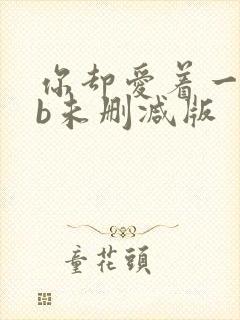 你却爱着一
b未删减版
童花頭